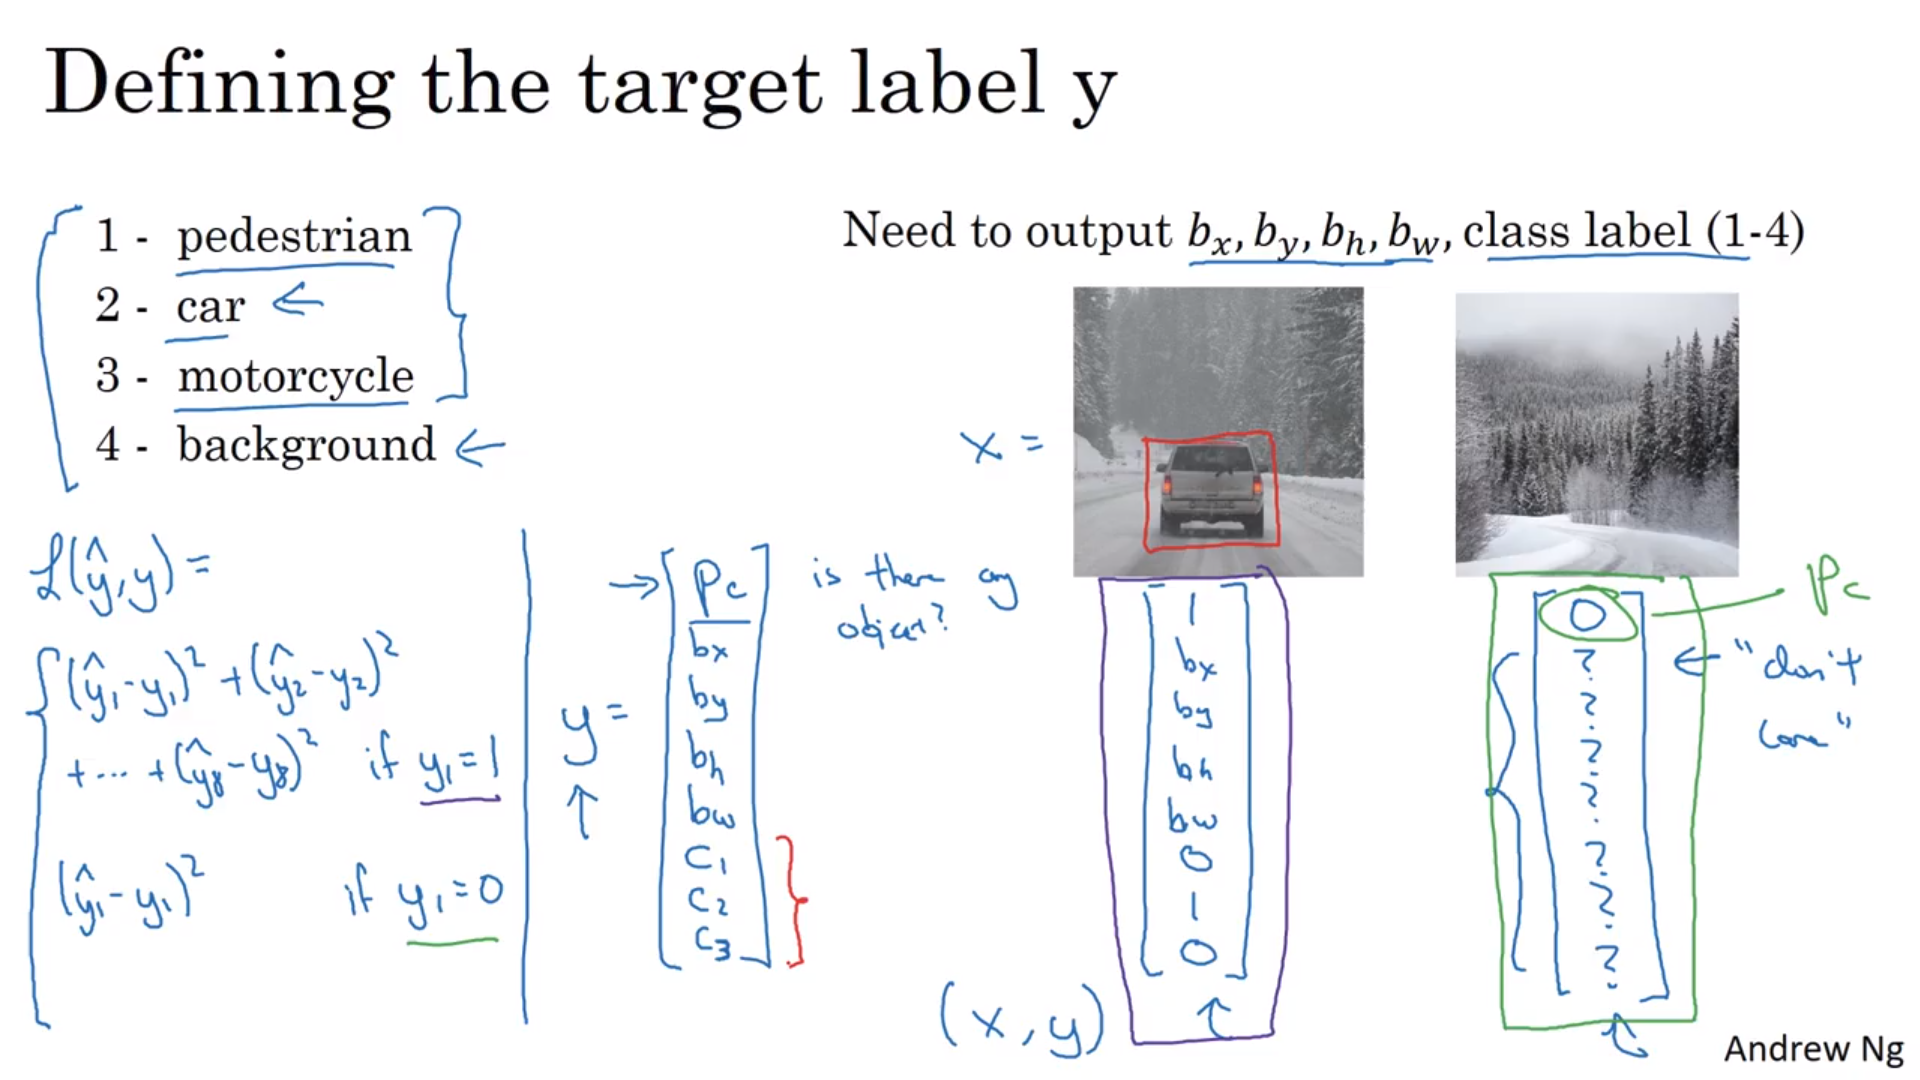 Defining the target label y
1 - pedestrian
2 - car ←
3 - motorcycle
4 - background ←
Need to output bₓ, b_y, b_h, b_w, class label (1-4)
x =
ℒ(ŷ, y) =
(ŷ₁ - y₁)² + (ŷ₂ - y₂)²
+ ... + (ŷ₈ - y₈)² if y₁ = 1
(ŷ₁ - y₁)² if y₁ = 0
y =
→ Pc
bx
by
bh
bw
C₁
C₂
C₃
is there any
object?
1
bx
by
bh
bw
0
1
0
(x, y)
0
?
?
?
?
?
?
?
Pc
← "don't
care"
Andrew Ng